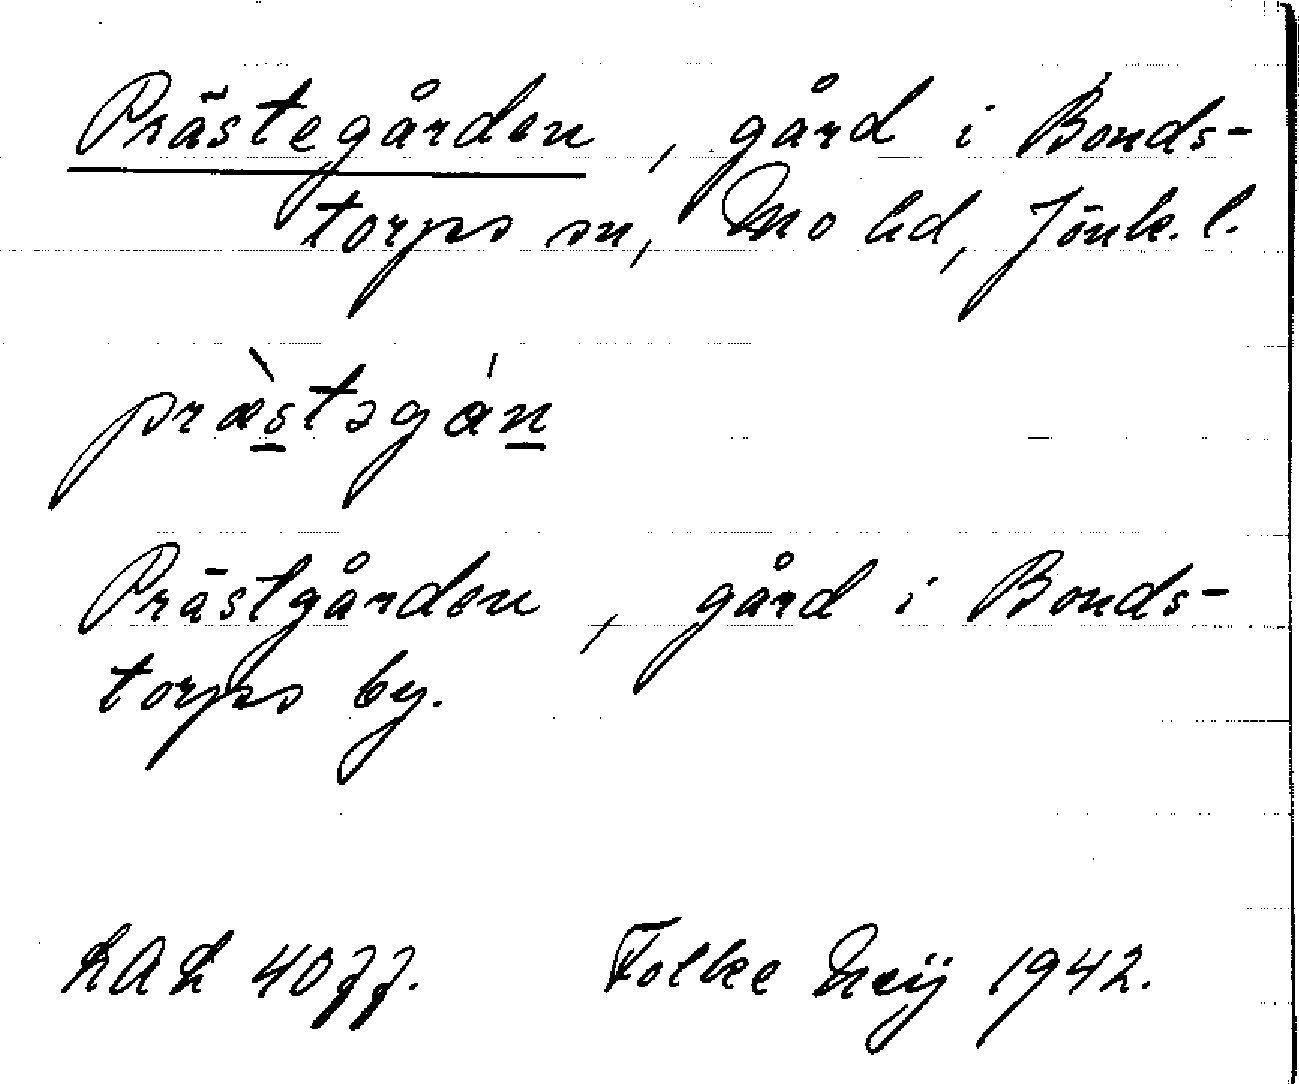 Prästegården, gård i Bonds-
torps sn, Mo hd, Jönk. l.
præ̀stəgán
Prästgården, gård i Bonds-
torps by.
KAK 40 ff. Folke Neij 1942.